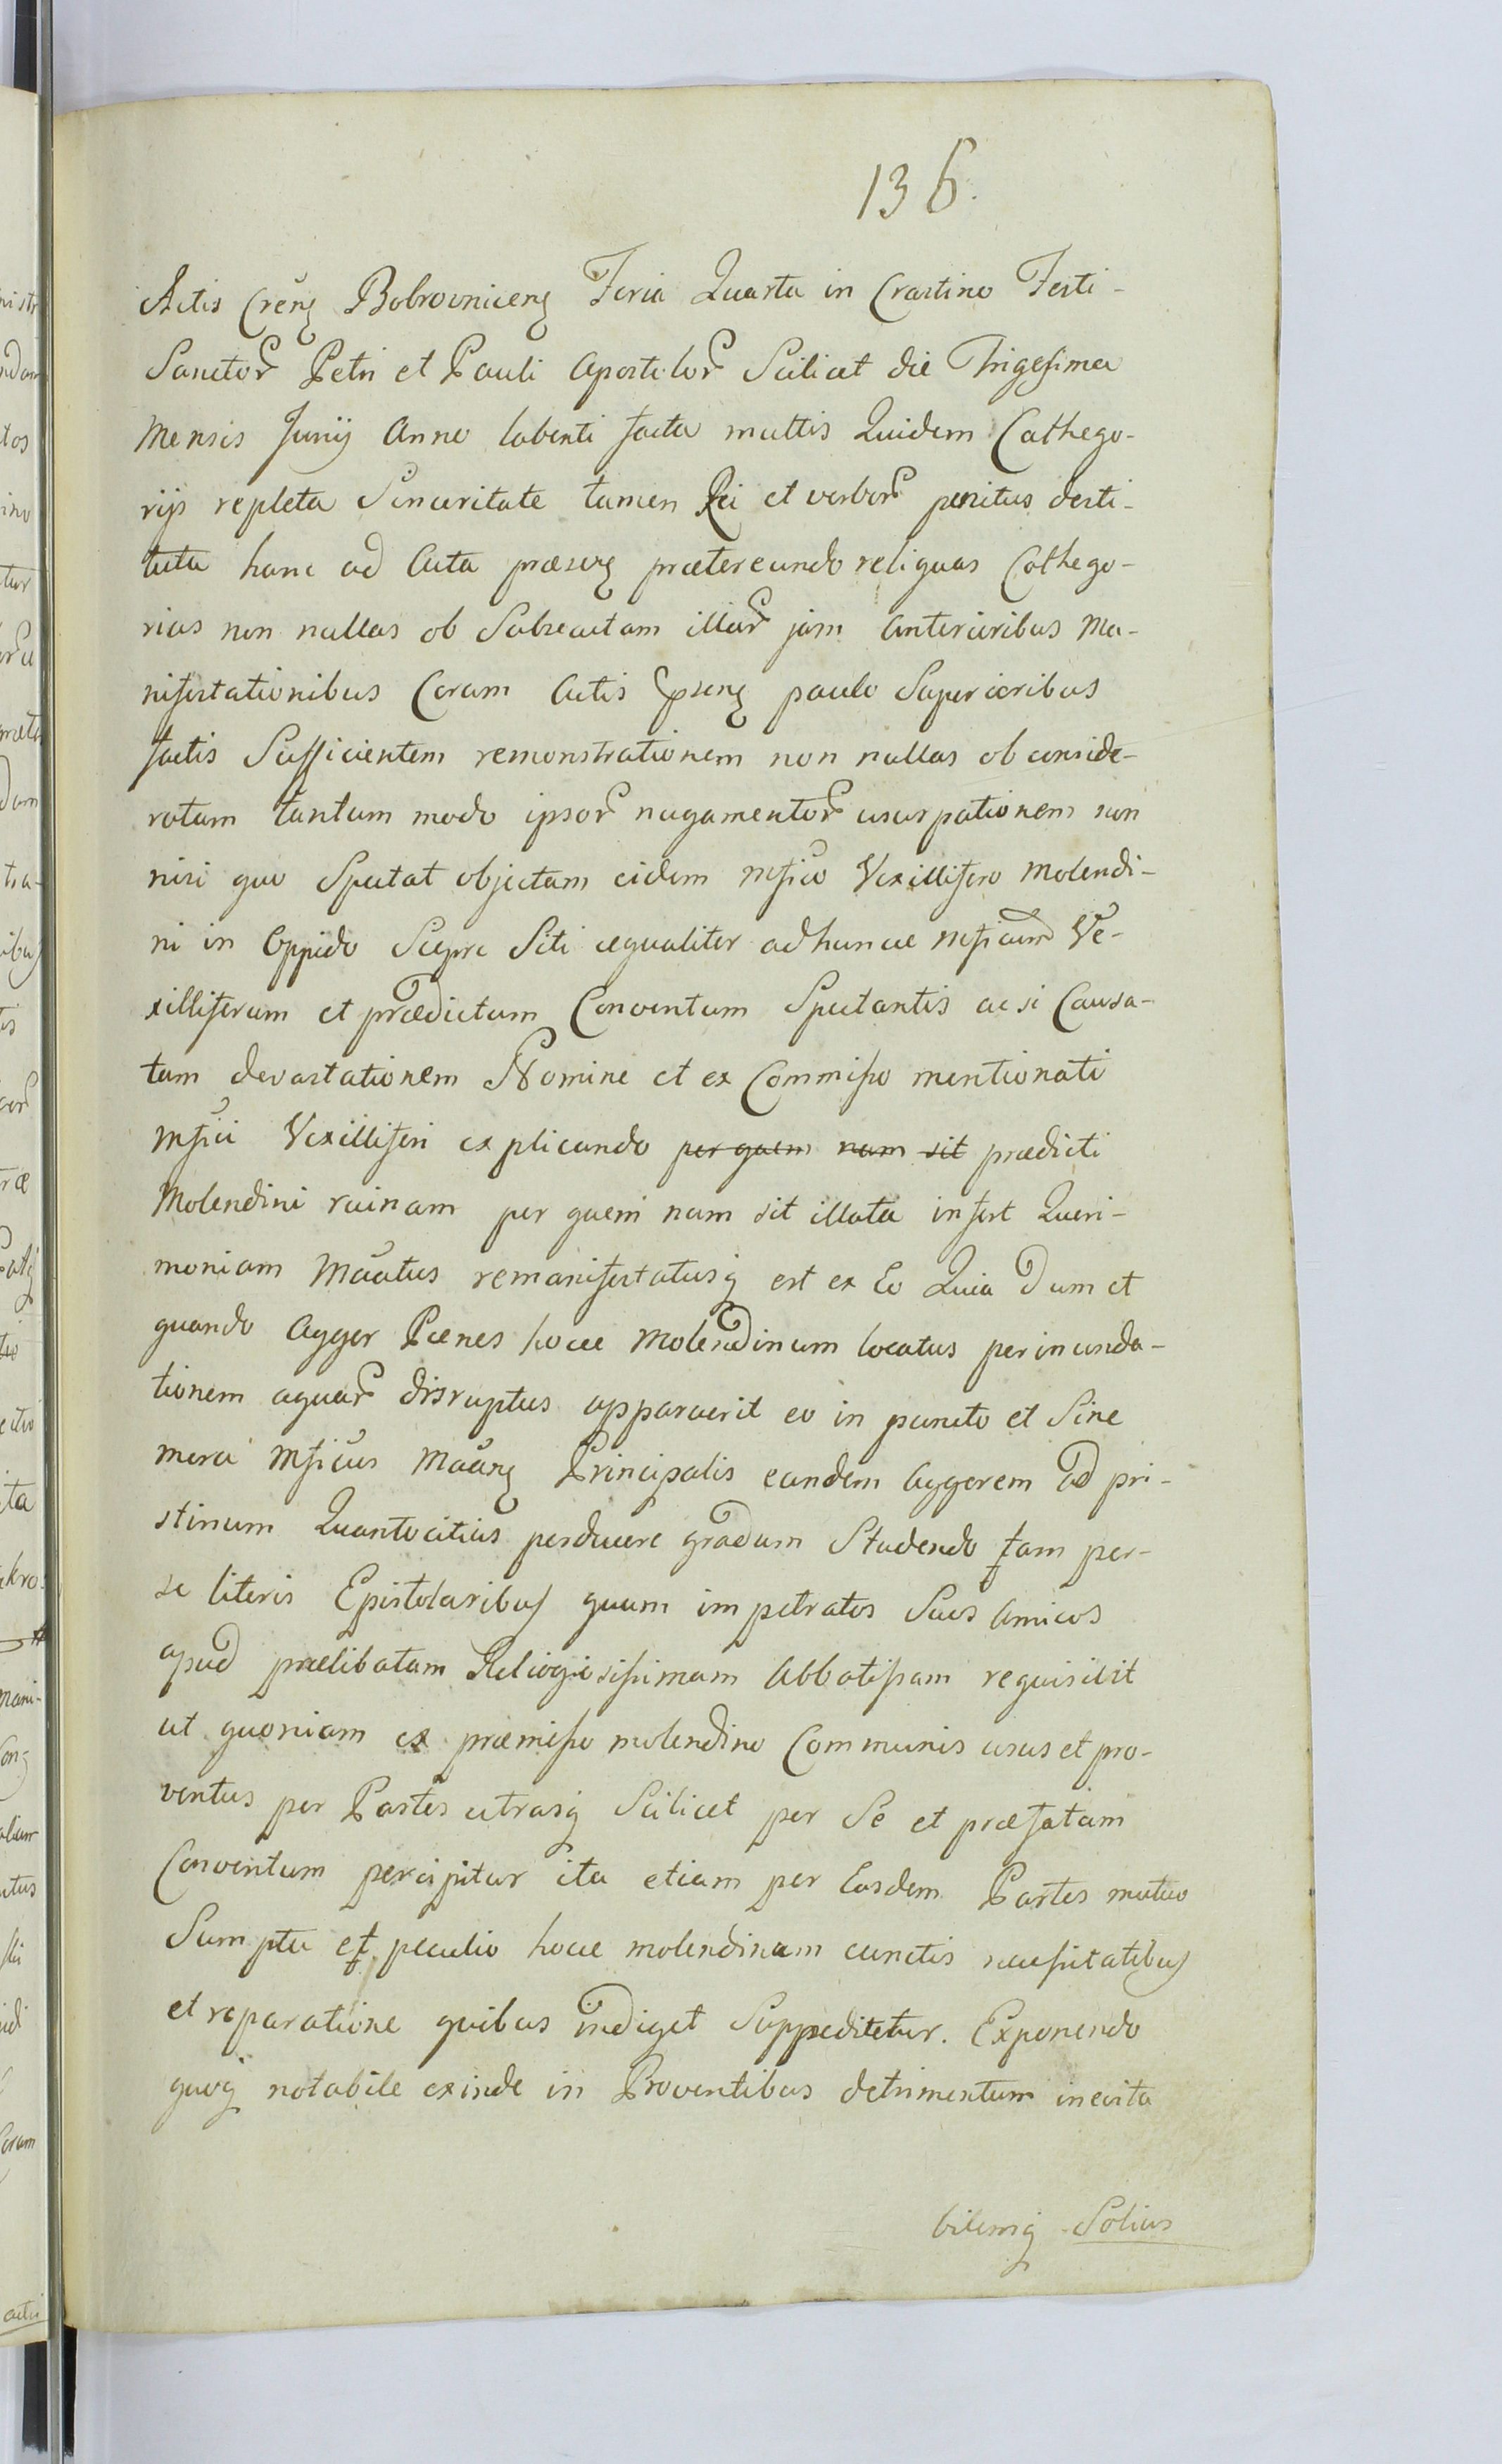 136.
Actis Creñ Bobrovnicen Feria Quarta in Crastino Festi-
Sanctor Petri et Pauli Apostolor Scilicet die Trigesima
Mensis Junij Anno labenti facta multis Quidem Cathego-
rijs repleta Sinceritate tamen Rei et verbor penitus desti-
tuta hanc ad Acta præsen prætereundo reliquas Cathego-
rias non nullas ob Subsecutam illar jam Anterioribus Ma-
nifestationibus Coram Actis præsen paulo Superioribus
factis Sufficientem remonstrationem non nullas ob conside-
ratam tantum modo ipsor nugamentor usurpationem non
nisi quo Spectat objectam eidem Mfico Vexillifero Molendi-
ni in Oppido Siti æqualiter ad huncce Mficum Ve-
xilliferum et prædictum Conventum Spectantis ac si Causa-
tam devastationem Nomine et ex Commisso mentionati
Mfici Vexilliferi explicando per quem nam sit prædicti
Molendini ruinam per quem nam sit illata infert Queri-
moniam Mãatus remanifestatusq est ex Eo Quia Dum et
quando Agger Pœnes hocce Molendinum locatus per inunda-
tionem aquar disruptus apparuerit eo in puncto et Sine
mora Mficus Mãan Principalis eundem Aggerem ad pri-
stinum Quantocitius perducere gradum Studendo tam per-
se literis Epistolaribus quam impetratos Suos Amicos
apud prælibatam Religiosissimam Abbatissam requisivit
ut quoniam ex præmisso molendino Communis usus et pro-
ventus per Partes utrasq Scilicet per Se et præfatam
Conventum percipitur ita etiam per Easdem Partes mutuo
Sumptu et peculio hocce molendinum cunctis necessitatibus
et reparatione quibus indiget Suppeditetur. Exponendo
quoq notabile exinde in Proventibus detrimentum inevita
bilemq Solius